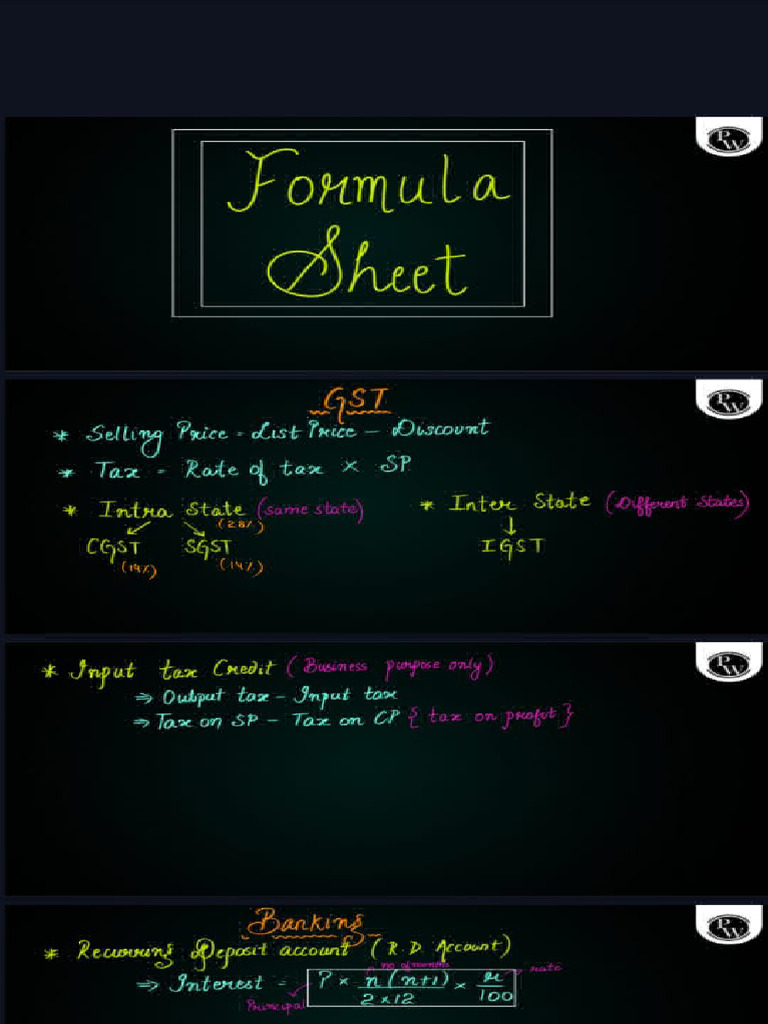 PW
Formula
Sheet
PW
GST
* Selling Price = List Price - Discount
* Tax = Rate of tax × SP
* Intra State (same state) * Inter State (Different States)
(28%)
CGST SGST IGST
(14%) (14%)
PW
* Input tax Credit (Business purpose only)
⇒ Output tax - Input tax
⇒ Tax on SP - Tax on CP { tax on profit }
PW
Banking
* Recurring Deposit account (R.D. Account)
no of months
⇒ Interest = P × n(n+1) / 2×12 × r / 100 rate
Principal